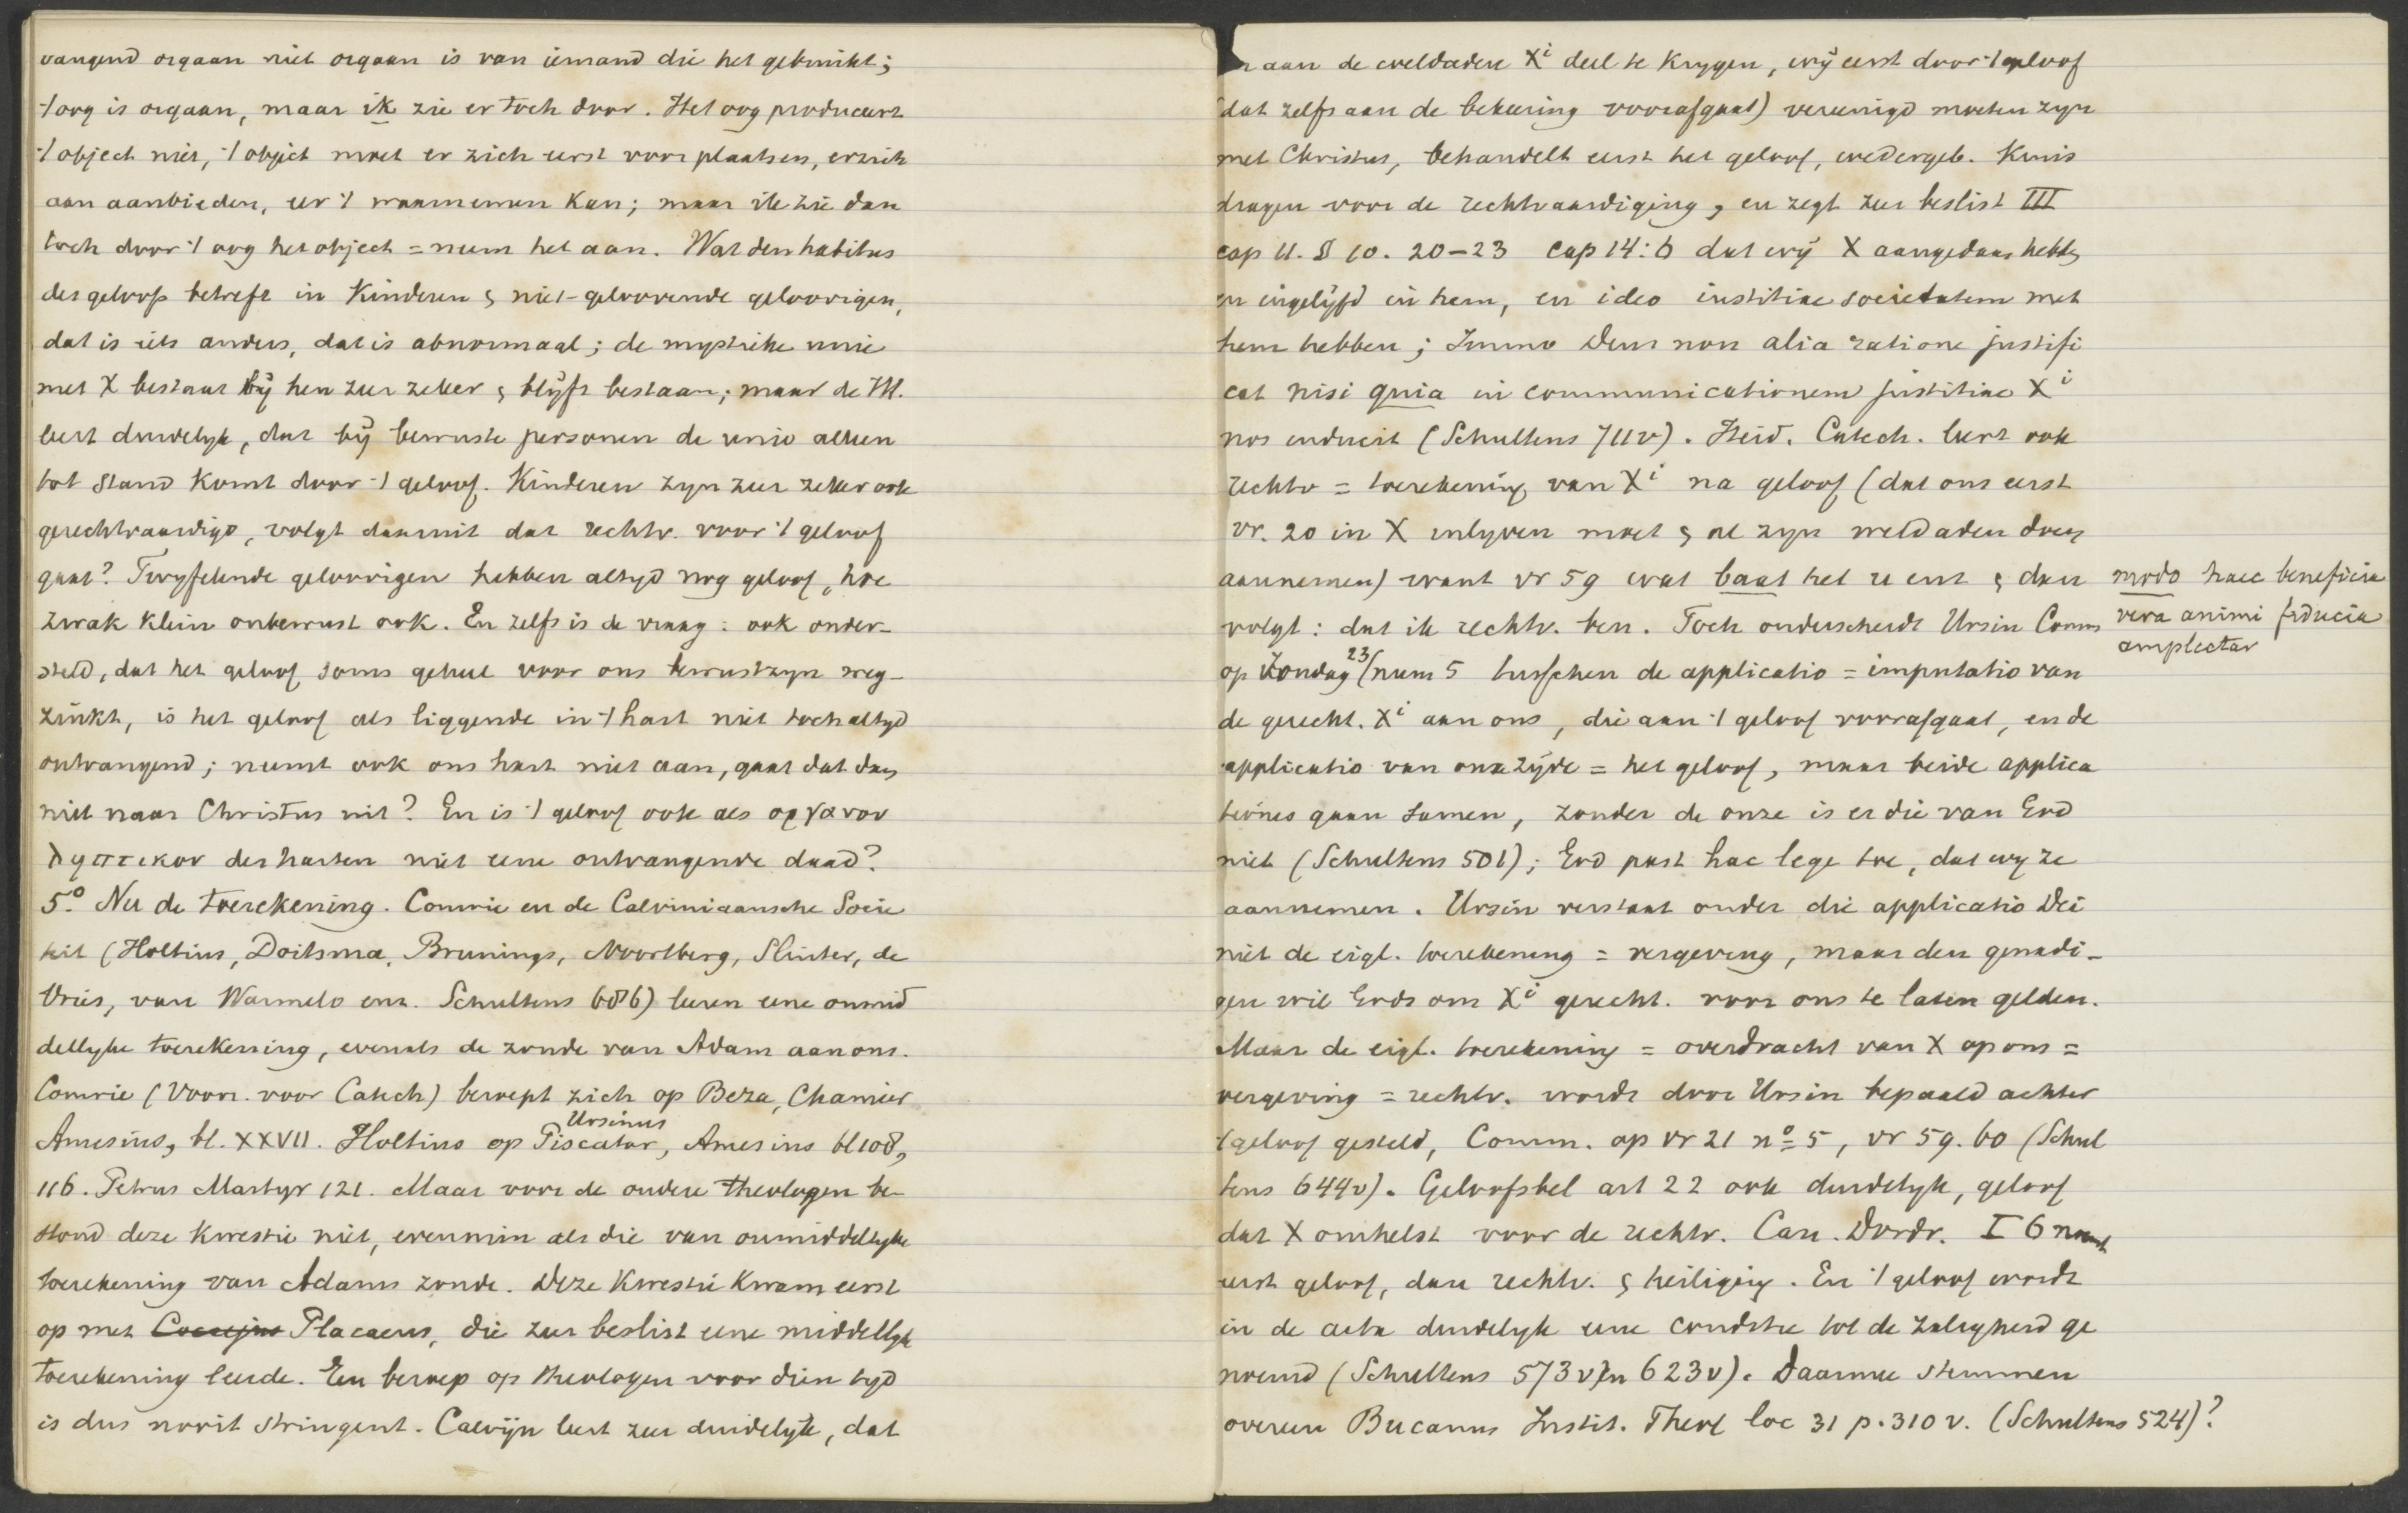 vangend orgaan niet orgaan is van iemand die het gebruikt;
't oog is orgaan, maar ik zie er toch door. Het oog produceert
't object niet, 't object moet er zich eerst voor plaatsen, er zich
aan aanbieden, eer 't waarnemen kan; maar ik zie dan
toch door 't oog het object = neem het aan. Wat den habitus
des geloofs betreft in kinderen & niet-geloovende geloovigen,
dat is iets anders, dat is abnormaal; de mystieke unie
met X bestaat bij hen zeer zeker & blijft bestaan; maar de H.S.
leert duidelyk, dat bij bewuste personen de unio alleen
tot stand komt door 't geloof. Kinderen zyn zeer zeker ook
gerechtvaardigd, volgt daaruit dat rechtv. voor 't geloof
gaat? Twyfelende geloovigen hebben altyd nog geloof, hoe
zwak klein onbewust ook. En zelfs is de vraag: ook onder-
steld, dat het geloof soms geheel voor ons bewustzyn weg-
zinkt, is het geloof als liggende in 't hart niet toch altyd
ontvangend; neemt ook ons hart niet aan, gaat dat dan
niet naar Christus uit? En is 't geloof ook als οργανον
ληπτικον des harten niet eene ontvangende daad?
5.º Nu de toerekening. Comrie en de Calviniaansche Socie
teit (Holtius, Doitsma, Brunings, Noortberg, Sluiter, de
Vries, van Warmelo enz. Schultens 686) leeren eene onmid
dellyke toerekening, evenals de zonde van Adam aan ons.
Comrie (Voorr. voor Catech) beroept zich op Beza, Chamier
Ursinus
Amesius, bl. XXVII. Holtius op Piscator, Amesius bl 108,
116. Petrus Martyr 121. Maar voor de oudere theologen be-
stond deze kwestie niet, evenmin als die van onmiddellyke
toerekening van Adams zonde. Deze kwestie kwam eerst
op met Coccejus Placaeus, die zeer beslist eene middellyk
toerekening leerde. Een beroep op theologen voor dien tyd
is dus nooit stringent. Calvijn leert zeer duidelyk, dat
aan de weldaden Xi deel te krygen, wij eerst door 't geloof
(dat zelfs aan de bekeering voorafgaat) vereenigd moeten zyn
met Christus, behandelt eerst het geloof, wedergeb. Kruis
dragen voor de rechtvaardiging, en zegt zeer beslist III
cap 11. § 10. 20-23 cap 14:6 dat wij X aangedaan hebben
en ingelijfd in hem, en ideo iustitiae societatem met
hem hebben; Immo Deus non alia ratione justifi
cat nisi quia in communicationem justitiae Xi
nos inducit (Schultens 711v). Heid. Catech. leert ook
rechtv = toerekening van Xi na geloof (dat ons eerst
vr. 20 in X inlyven moet & al zyn weldaden doen
aannemen) want vr 59 wat baat het u enz & dan
modo haec beneficia
volgt: dat ik rechtv. ben. Toch onderscheidt Ursin Comm
vera animi fiducia
amplectar
op Zondag 23 (num 5 tusschen de applicatio = imputatio van
de gerecht. Xi aan ons, die aan 't geloof voorafgaat, en de
applicatio van onze zijde = het geloof, maar beide applica
tiones gaan samen, zonder de onze is er die van God
niet (Schultens 501); God past hac lege toe, dat wy ze
aannemen. Ursin verstaat onder die applicatio Dei
niet de eigl. toerekening = vergeving, maar den genadi-
gen wil Gods om Xi gerecht. voor ons te laten gelden.
Maar de eigl. toerekening = overdracht van X op ons =
vergeving = rechtv. wordt door Ursin bepaald achter
't geloof gesteld, Comm. op vr 21 nº 5, vr 59. 60 (Schul
tens 644v). Geloofsbel art 22 ook duidelyk, geloof
dat X omhelst voor de rechtv. Can. Dordr. I 6 noemt
eerst geloof, dan rechtv. & heiliging. En 't geloof wordt
in de acta duidelyk eene conditie tot de zaligheid ge
noemd (Schultens 573v) en 623v). Daarmee stemmen
overeen Bucanus Instit. Theol loc 31 p. 310 v. (Schultens 524)?